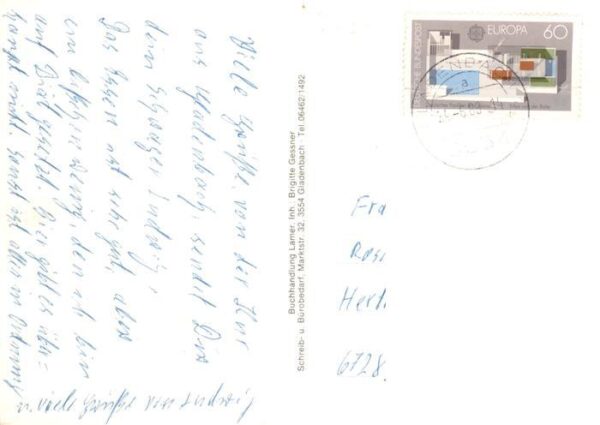 Viele Grüße von der Kur
aus Gladenbach, sendet Dir
dein Schwager Ludwig,
Das Essen ist sehr gut, aber
ein bißchen wenig, den ich bin
auf Diät gesetzt. Hier gibt es über=
haupt nicht, sonst ist alles in Ordnung
u. viele Grüße von Ludwig!
Buchhandlung Lamer, Inh. Brigitte Gessner
Schreib- u. Bürobedarf, Marktstr. 32, 3554 Gladenbach · Tel. 06462/1492
DEUTSCHE BUNDESPOST
EUROPA
60
Fra
Rosi
Hert
6728